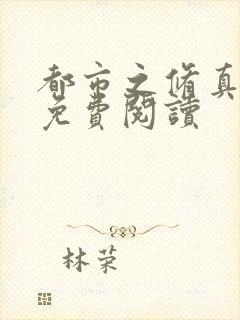 都市之脩真
免費閱讀
林荣